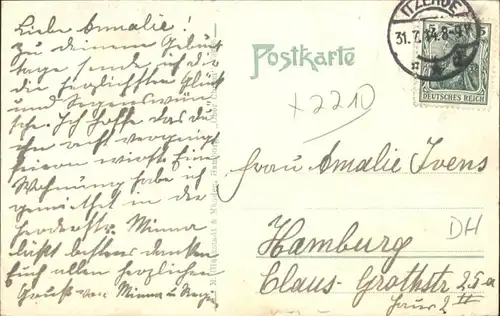 Liebe Annalie!
Zu deinem Geburts
tage sende ich dir
die herzlichsten Glück
und Segenswün
sche. Ich hoffe das du
ihn recht vergnügt
feiern wirst. Eine
Wohnung habe ich
gemiethet in der
Minna
läßt bestens danken
Euch allen herzlichen
Gruß von Minna u
Postkarte
ITZEHOE
31.7.14.8-9V
5
DEUTSCHES REICH
x 2210
Frau Amalie Ivens
Hamburg
DH
Claus-Grothstr 25a
Haus 2 II